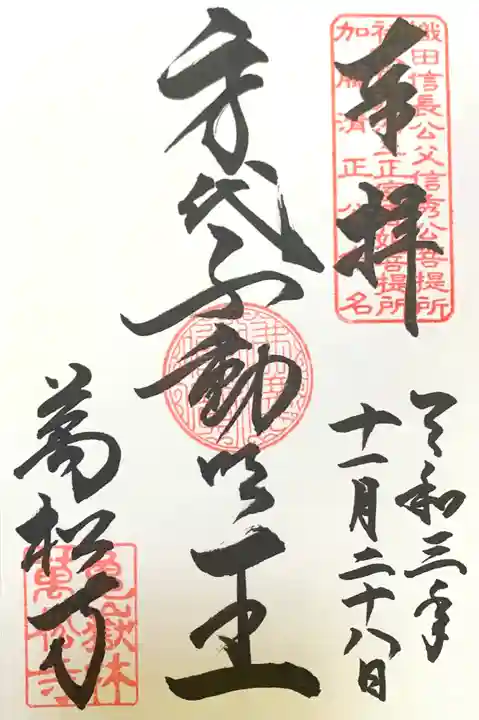 奉拝
織田信長公父信秀公菩提所
加藤清正公
名
令和三年
十一月二十八日
身代不動明王
萬松寺
亀嶽林
萬松寺